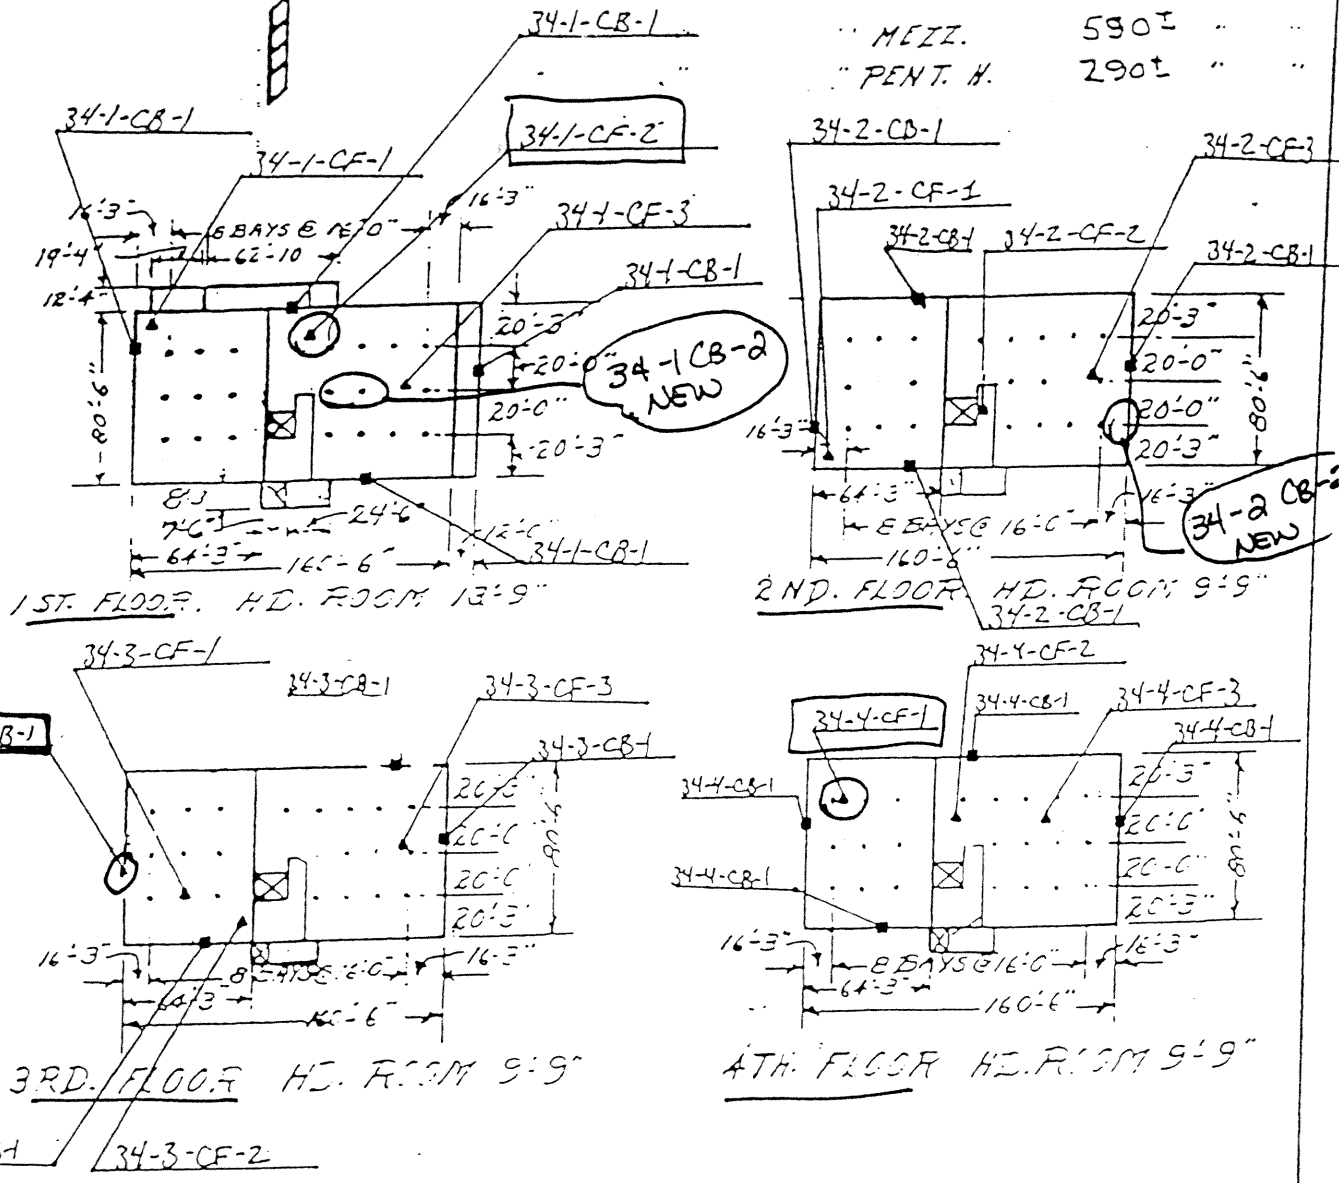 34-1-CB-1
" MEZZ. 590± " "
" PENT. H. 290± " "
34-1-CB-1
34-1-CF-2
34-1-CF-1
16'-3"
16'-3"
8 BAYS @ 16'-0"
34-1-CF-3
19'-4
62'-10
34-1-CB-1
12'-4"
20'-3"
20'-0"
20'-0"
20'-3"
80'-6"
34-1 CB-2
NEW
8'-3
7'-6"
24'-6
12'-0"
64'-3"
160'-6"
34-1-CB-1
1ST. FLOOR. HD. ROOM 13'-9"
34-2-CB-1
34-2-CF-3
34-2-CF-1
34-2-CB-1
34-2-CF-2
34-2-CB-1
20'-3"
20'-0"
20'-0"
20'-3"
80'-6"
16'-3"
64'-3"
16'-3"
8 BAYS @ 16'-0"
160'-6"
34-2 CB-2
NEW
2ND. FLOOR. HD. ROOM 9'-9"
34-2-CB-1
34-3-CF-1
34-3-CB-1
34-3-CF-3
B-1
34-3-CB-1
20'-3"
20'-0
20'-0
20'-3"
80'-6"
16'-3"
8 BAYS @ 16'-0"
16'-3"
64'-3
160'-6"
3RD. FLOOR HD. ROOM 9'-9"
-1
34-3-CF-2
34-4-CF-2
34-4-CF-1
34-4-CB-1
34-4-CF-3
34-4-CB-1
34-4-CB-1
34-4-CB-1
20'-3"
20'-0"
20'-0"
20'-3"
80'-6"
16'-3"
8 BAYS @ 16'-0"
16'-3"
64'-3"
160'-6"
4TH. FLOOR HD. ROOM 9'-9"